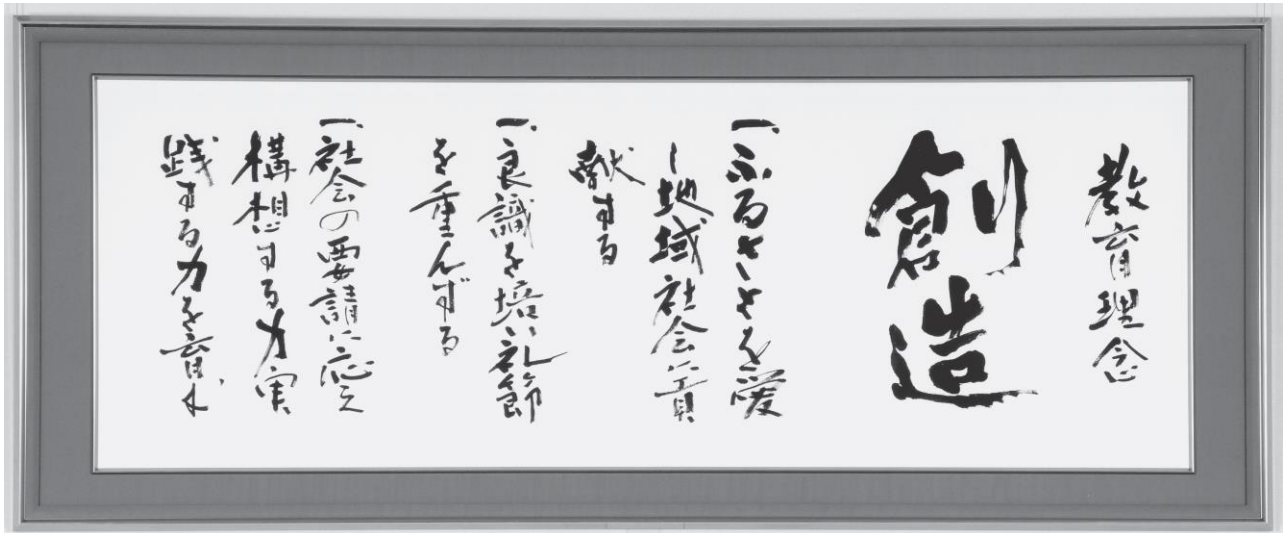 教育理念
創造
一、ふるさとを愛
し地域社会に貢
献する
一、良識を培い礼節
を重んずる
一、社会の要請に応え
構想する力実
践する力を育成